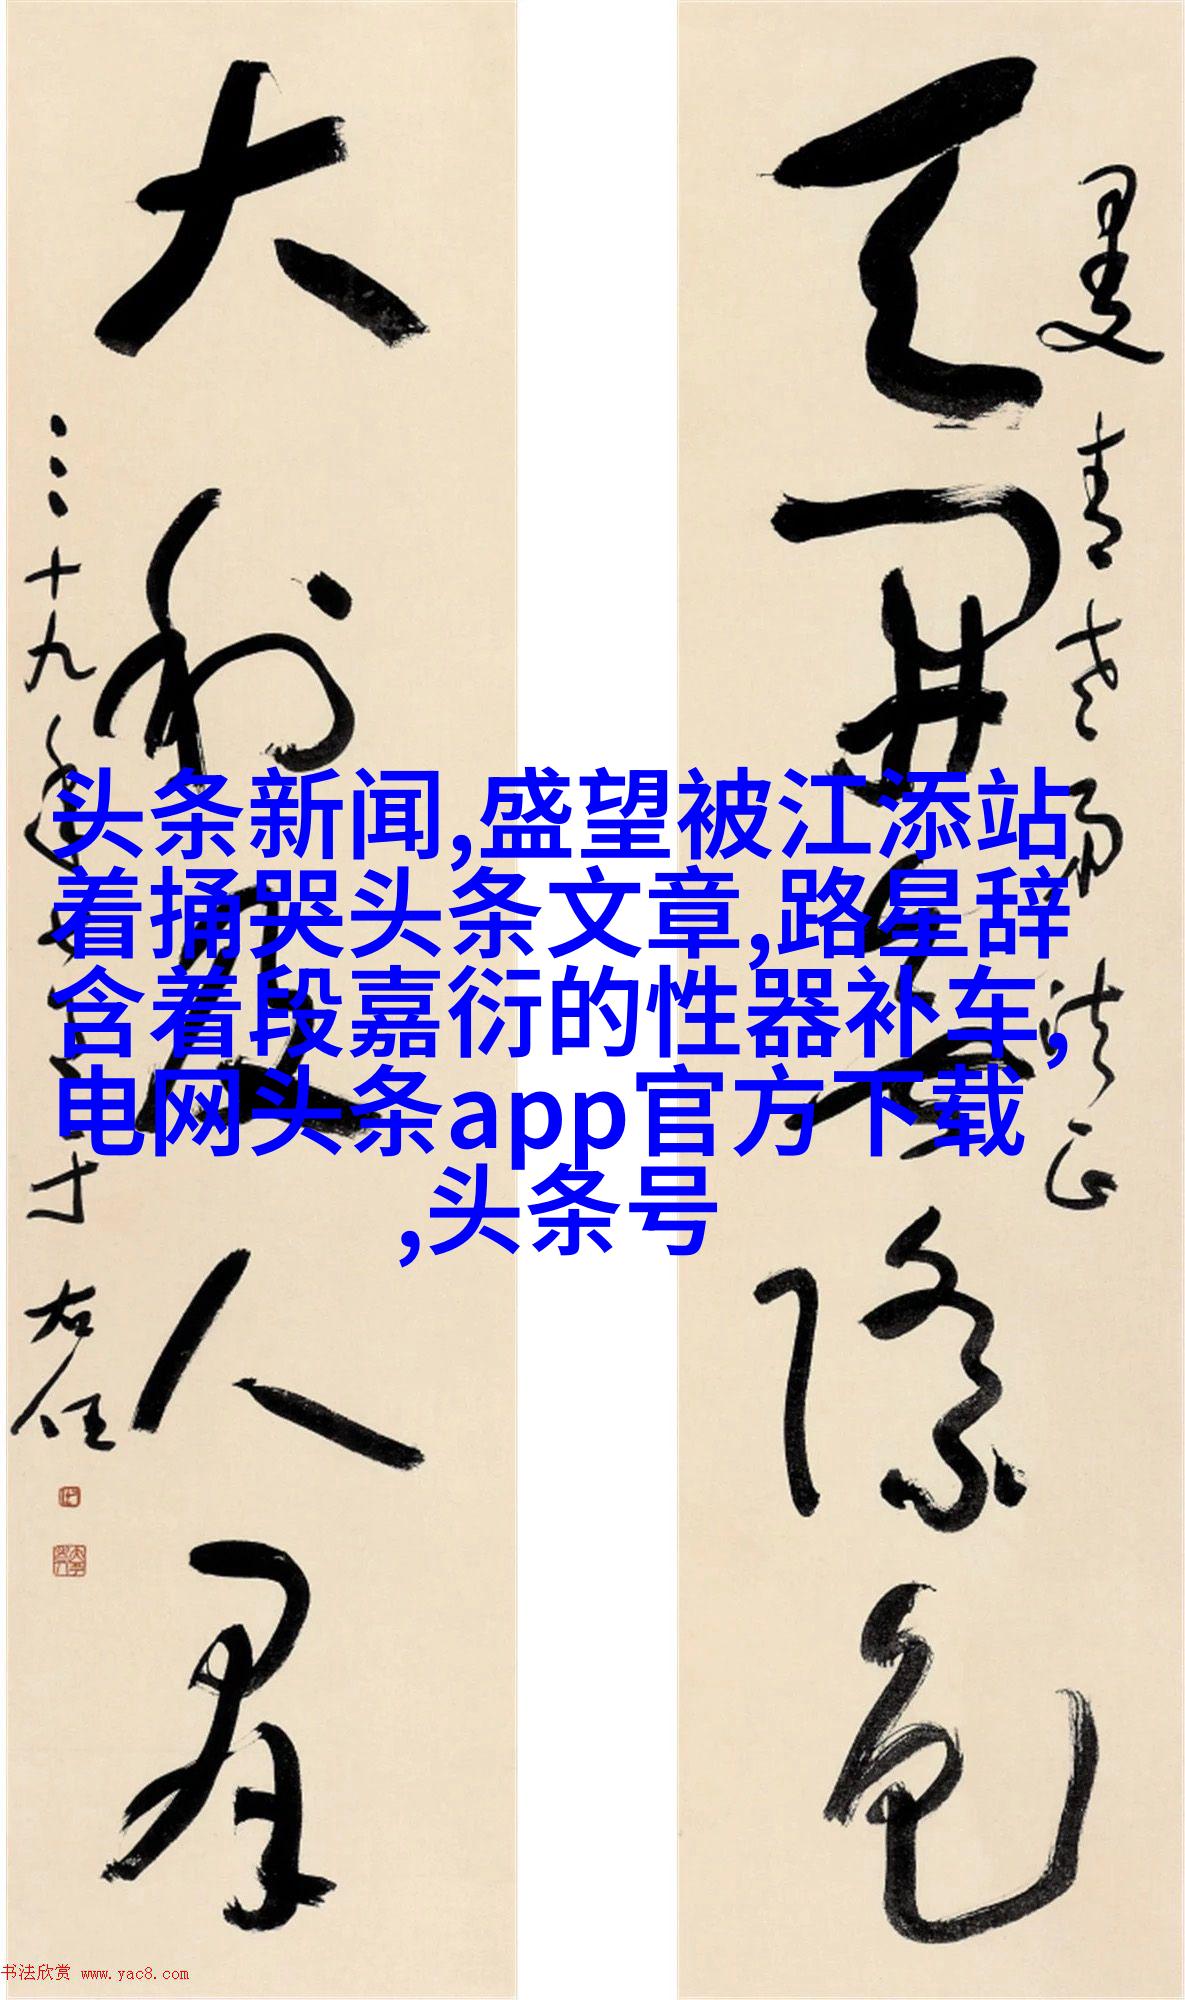 头条新闻,盛望被江添站
着捅哭头条文章,路星辞
含着段嘉衍的性器补车,
电网头条app官方下载
,头条号
青老
法正
天開
際色
大利
人
三十九年
右任
书法欣赏 www.yac8.com